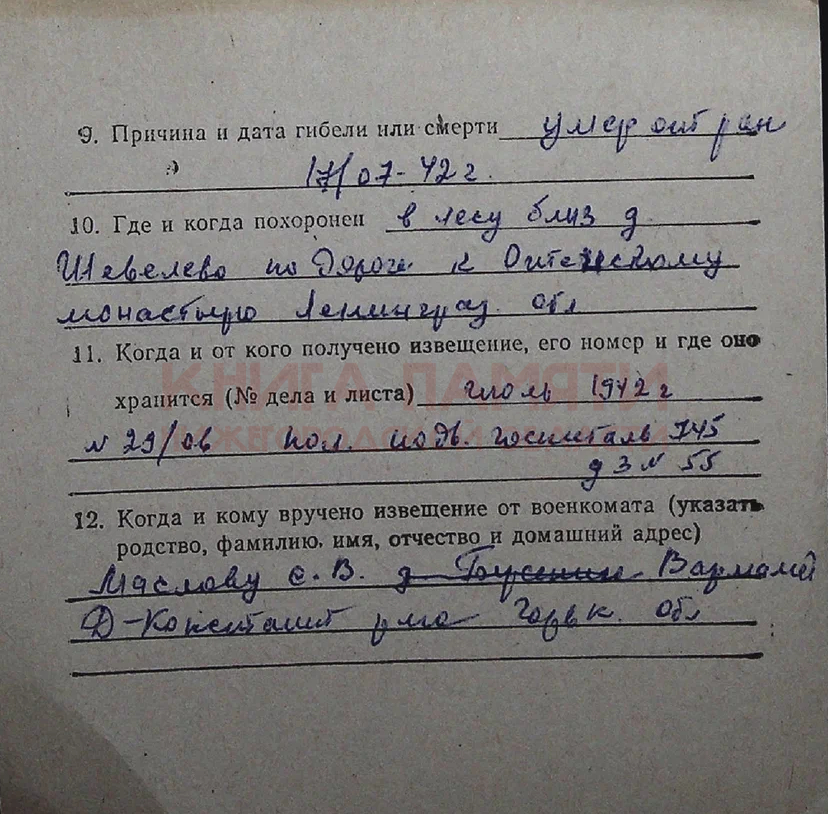 9. Причина и дата гибели или смерти умер от ран
17/07-42 г.
10. Где и когда похоронен в лесу близ д
Шевелево по дороге к
монастырю Ленинград. обл
11. Когда и от кого получено извещение, его номер и где оно
хранится (№ дела и листа) июль 1942 г
N 29/ов пол. подв. госпиталь 745
д 3 N 55
12. Когда и кому вручено извещение от военкомата (указать
родство, фамилию, имя, отчество и домашний адрес)
Маслову С. В. д
Д-Констант р-на Горьк. обл
КНИГА ПАМЯТИ
НИЖЕГОРОДСКОЙ ОБЛАСТИ